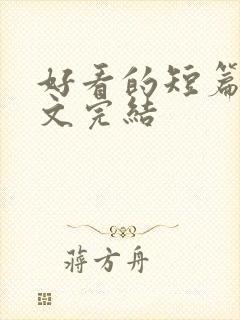 好看的短篇
文完結
蔣方舟